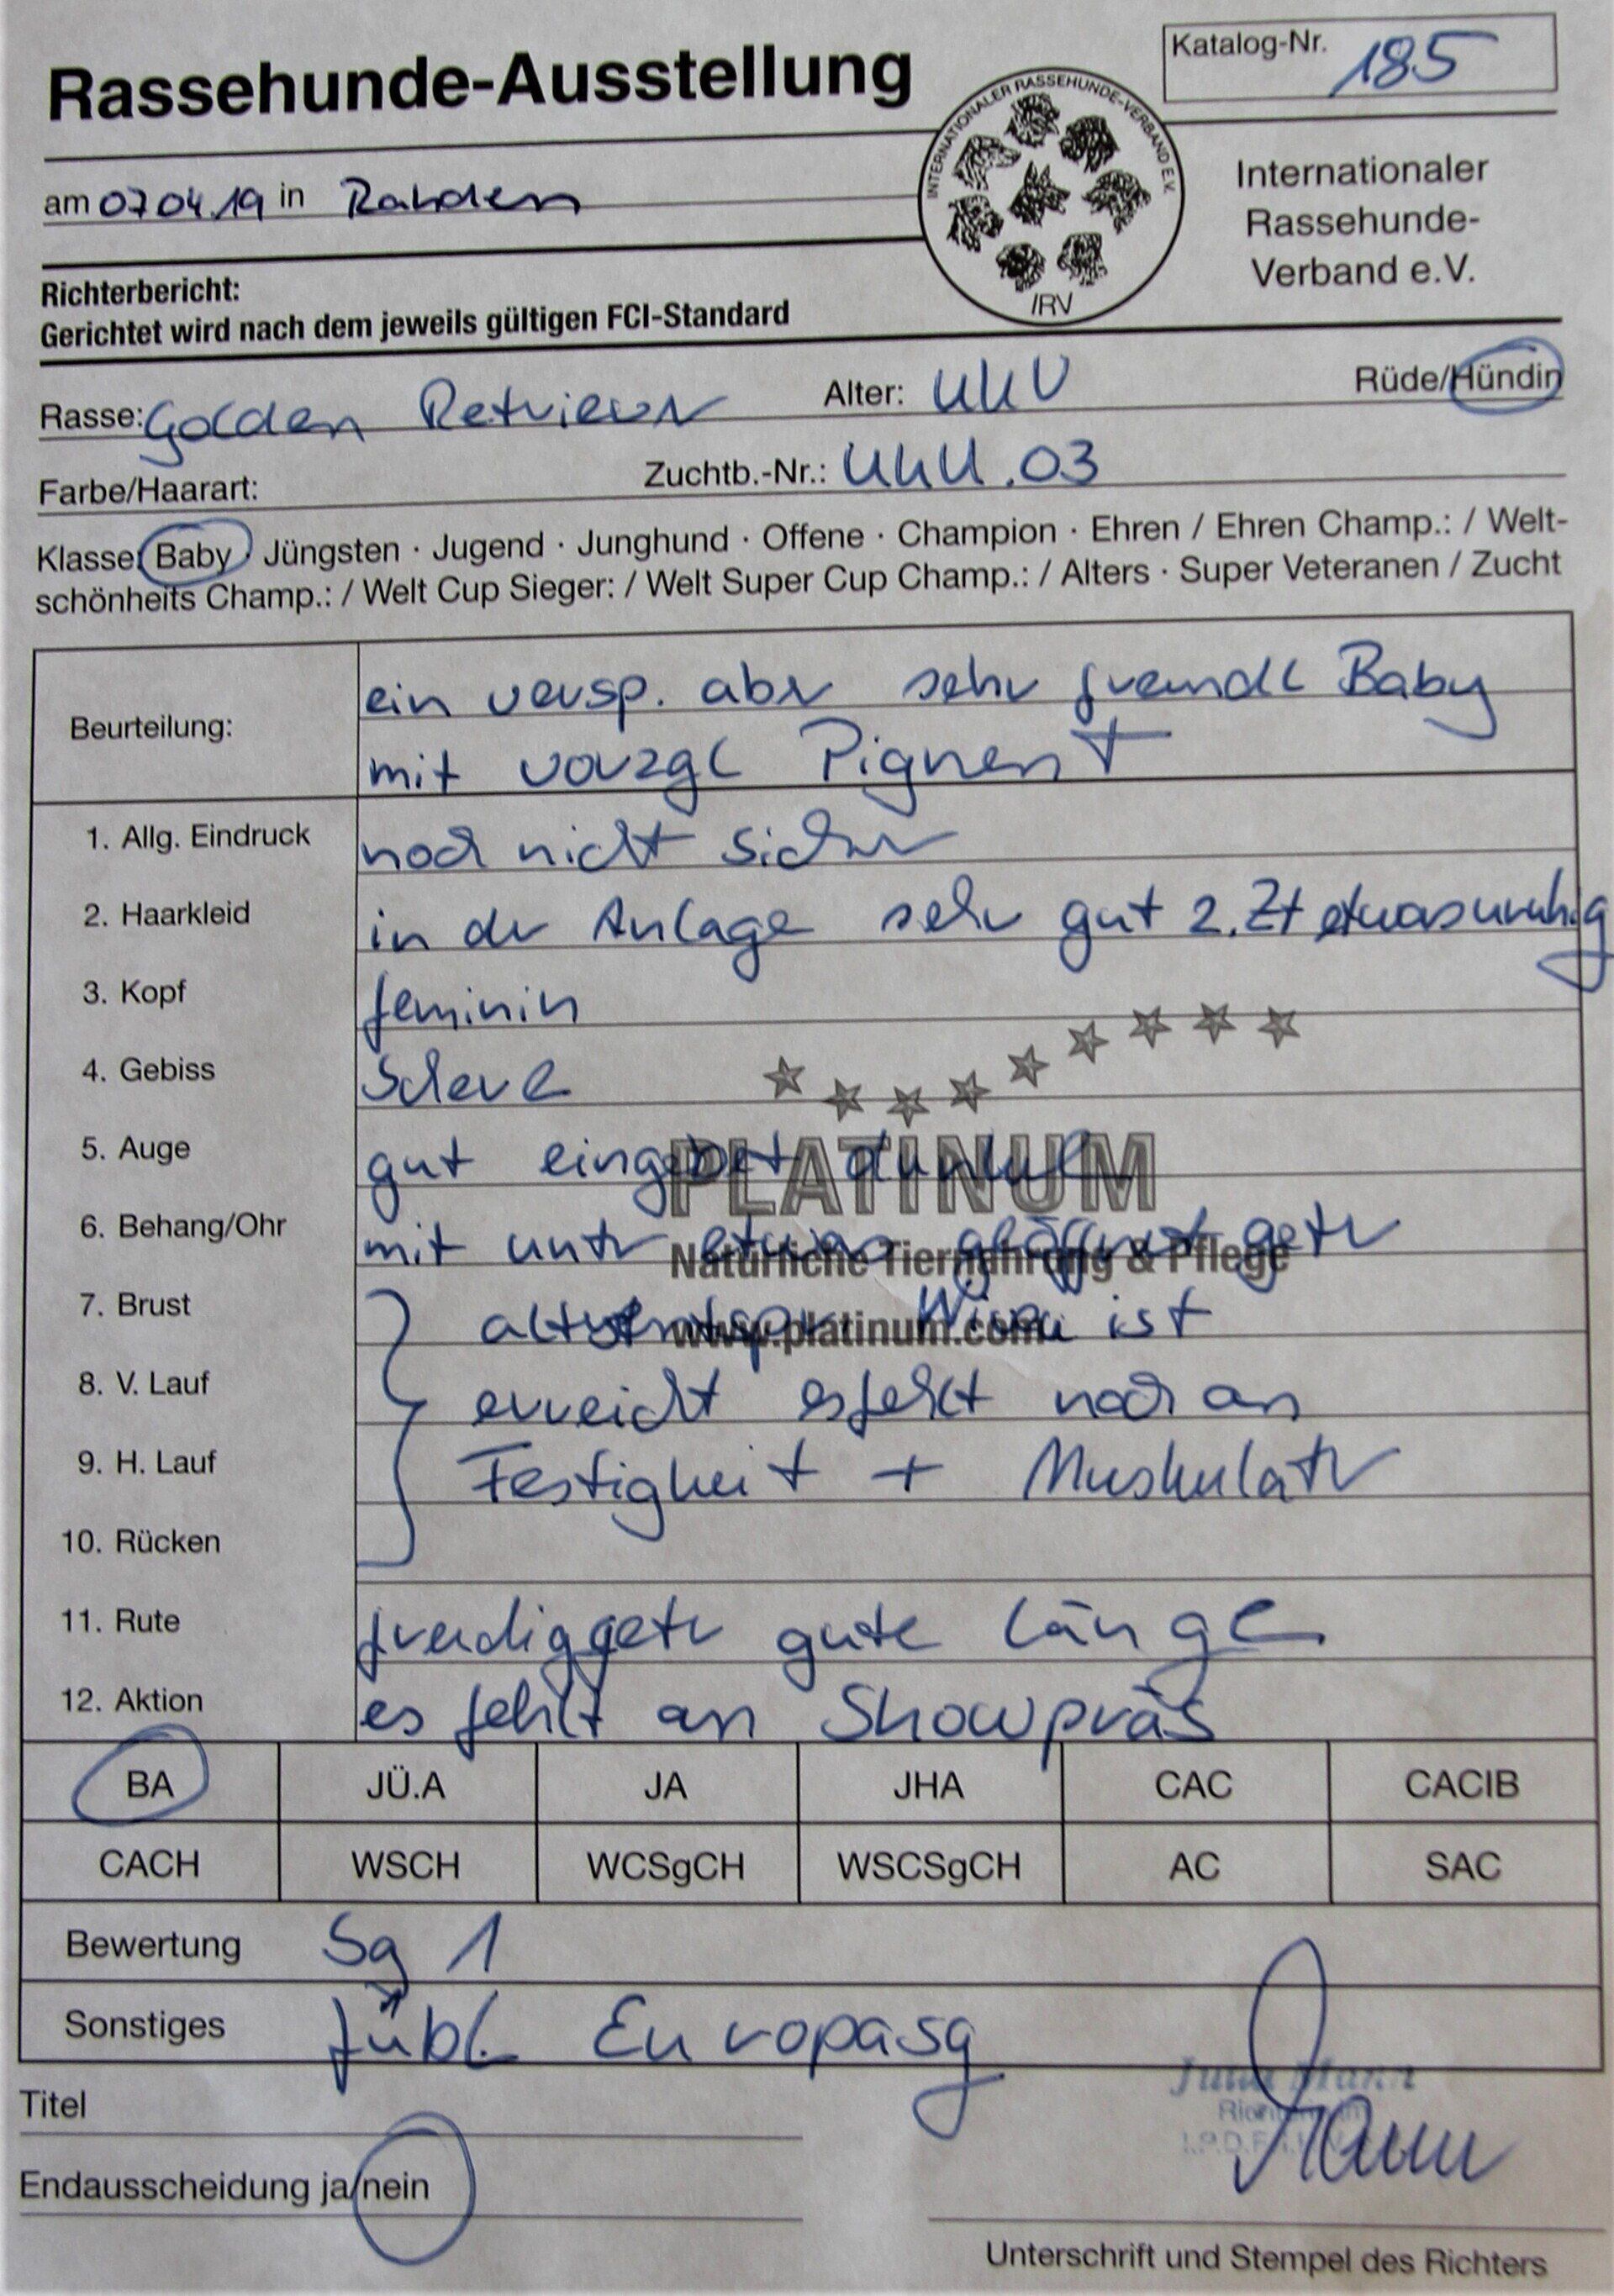 Rassehunde-Ausstellung
Katalog-Nr. 185
INTERNATIONALER RASSEHUNDE-VERBAND E.V.
IRV
am 07.04.19 in Rahden
Internationaler
Rassehunde-
Verband e.V.
Richterbericht:
Gerichtet wird nach dem jeweils gültigen FCI-Standard
Rasse: Golden Retriever Alter: Rüde/Hündin
Farbe/Haarart: Zuchtb.-Nr.: .03
Klasse: Baby · Jüngsten · Jugend · Junghund · Offene · Champion · Ehren / Ehren Champ.: / Welt-
schönheits Champ.: / Welt Cup Sieger: / Welt Super Cup Champ.: / Alters · Super Veteranen / Zucht
Beurteilung: ein versp. aber sehr freundl Baby
mit vorzgl Pigment
1. Allg. Eindruck noch nicht sicher
2. Haarkleid in der Anlage sehr gut z.Zt etwas unruhig
3. Kopf feminin
4. Gebiss Schere
5. Auge gut eingebet dunkel
6. Behang/Ohr mit unter etwas geöffnet getr
PLATINUM
Natürliche Tiernahrung & Pflege
www.platinum.com
7. Brust altersentspr. ist
8. V. Lauf erreicht es fehlt noch an
9. H. Lauf Festigkeit + Muskulatr
10. Rücken
11. Rute freudig getr gute Länge
12. Aktion es fehlt an Showpräs
BA JÜ.A JA JHA CAC CACIB
CACH WSCH WCSgCH WSCSgCH AC SAC
Bewertung Sg 1
Sonstiges Jübl. Europasg
Titel
Endausscheidung ja/nein
Unterschrift und Stempel des Richters